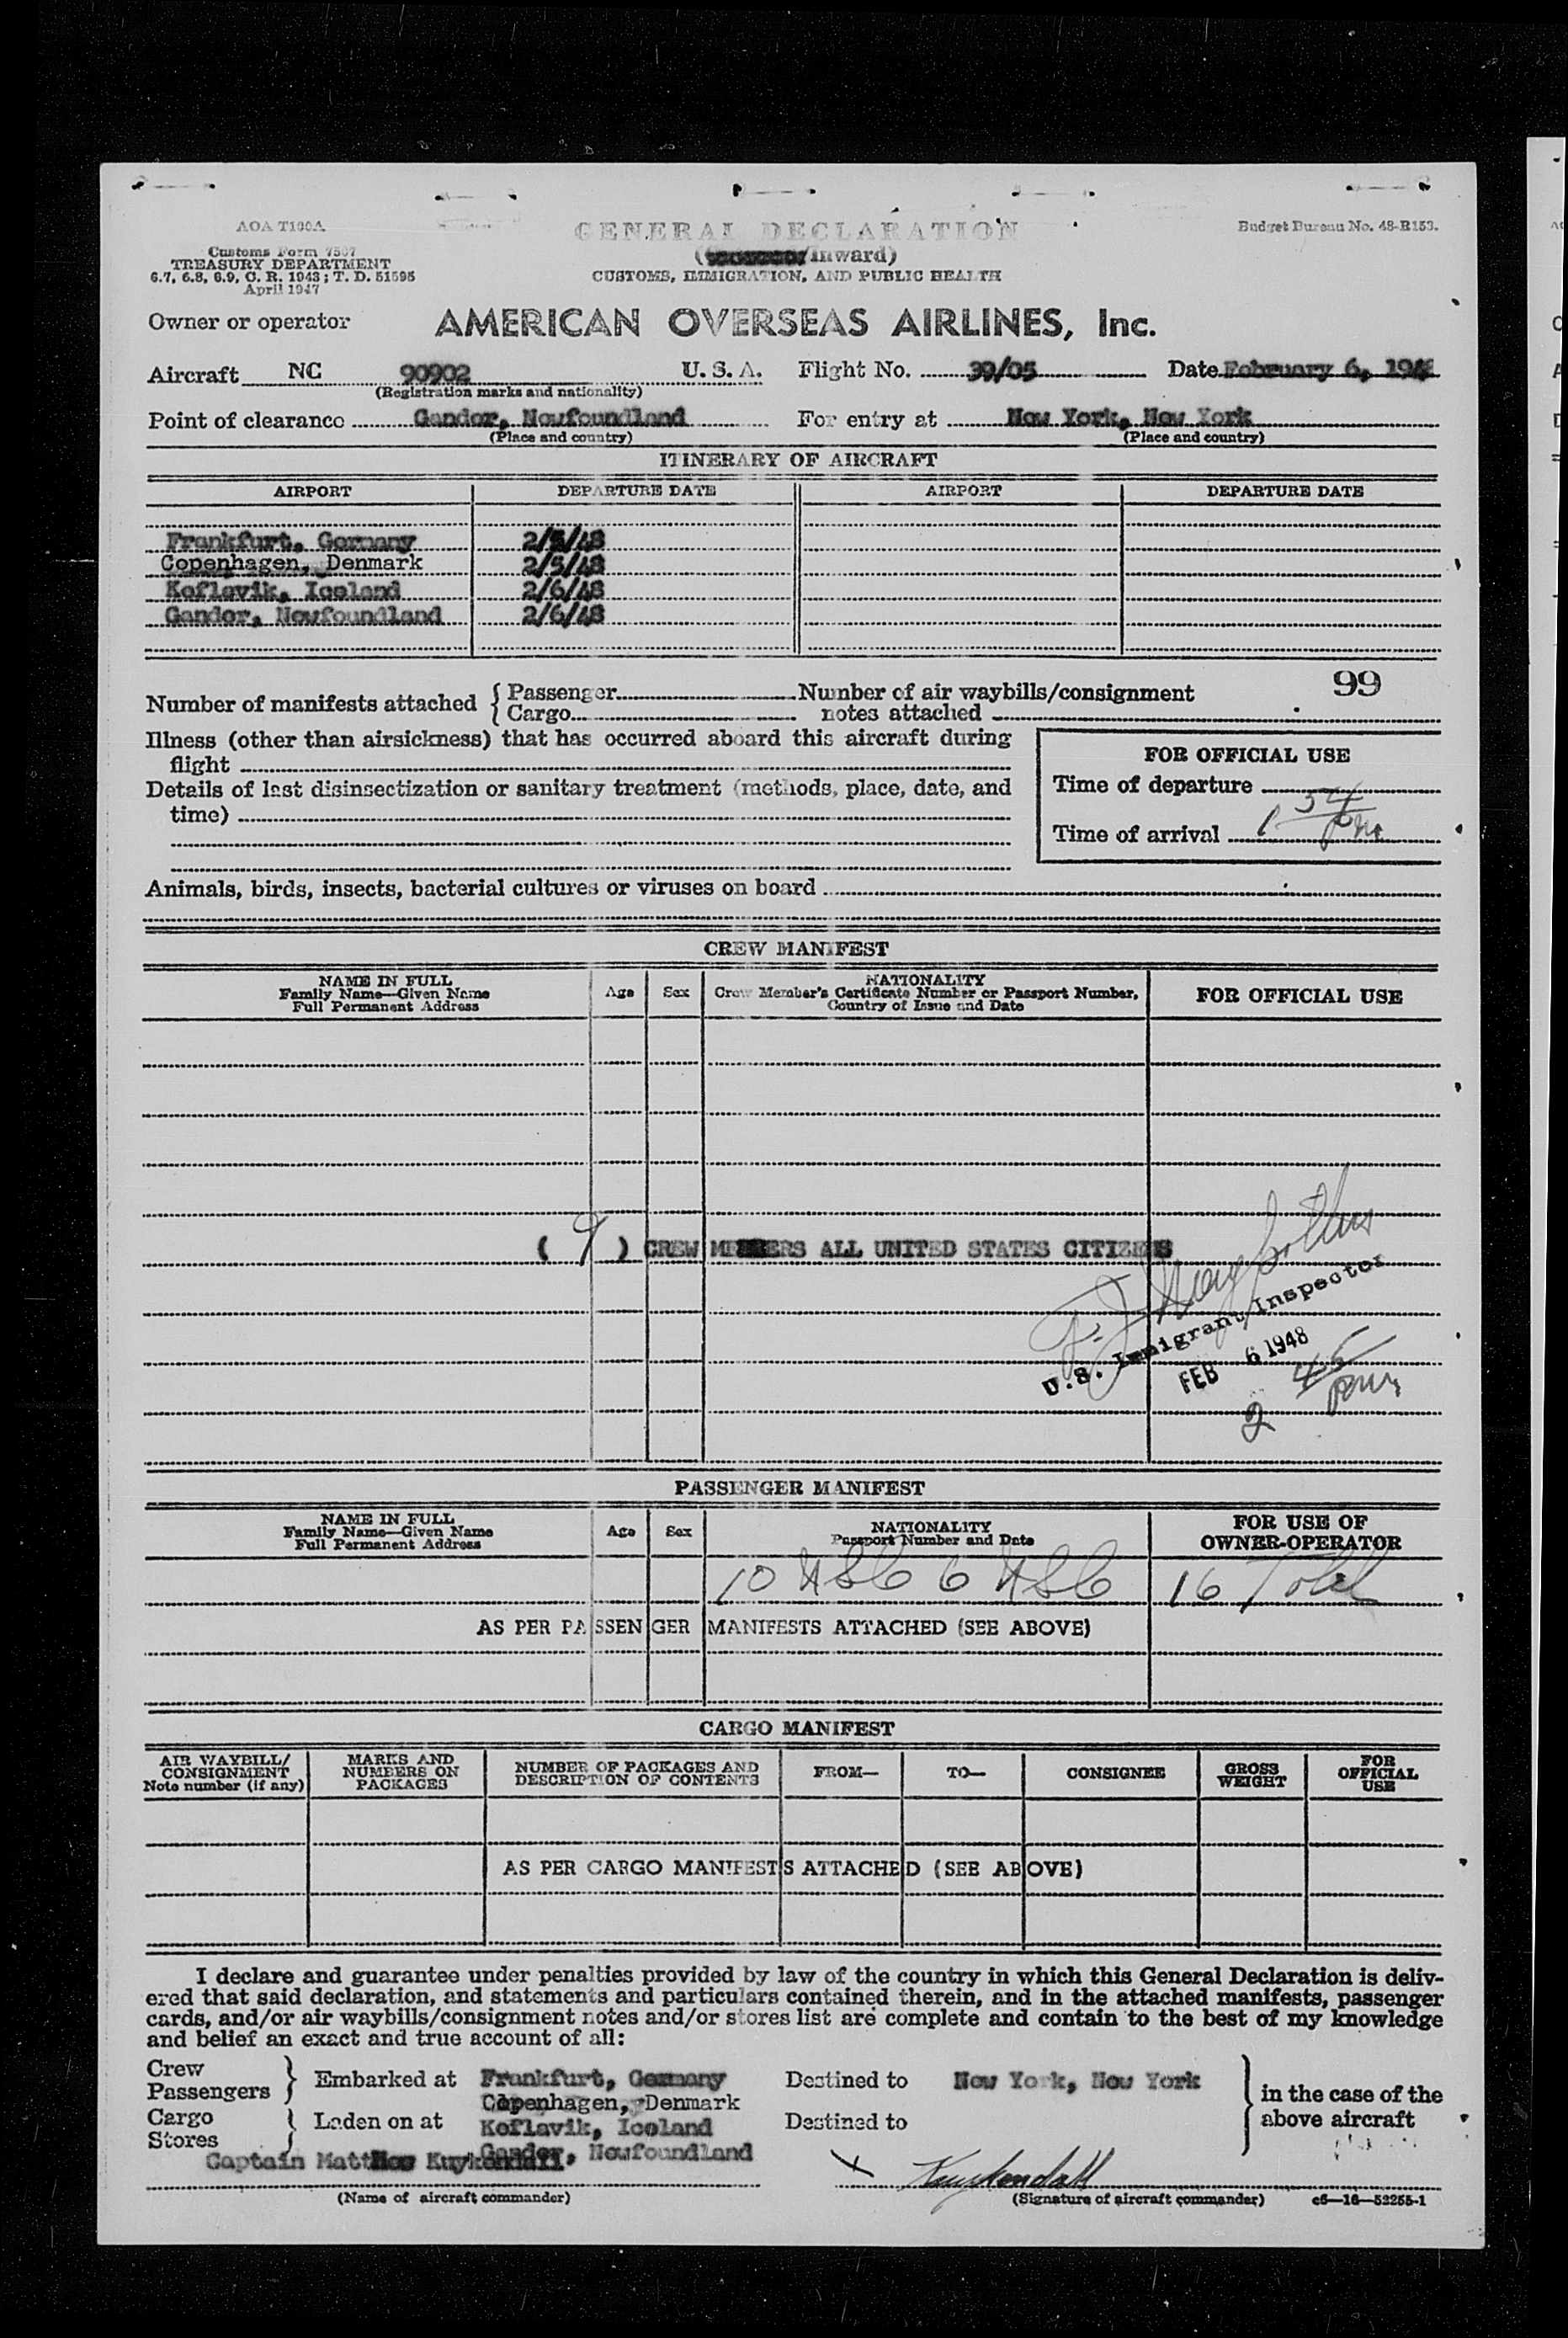 AOA T100A
GENERAL DECLARATION
Budget Bureau No. 48-R153.
Customs Form 7507
TREASURY DEPARTMENT
6.7, 6.8, 6.9, C. R. 1943; T. D. 51595
April 1947
Inward)
CUSTOMS, IMMIGRATION, AND PUBLIC HEALTH
Owner or operator AMERICAN OVERSEAS AIRLINES, Inc.
Aircraft NC 90902 U. S. A. Flight No. 39/05 Date February 6, 1948
(Registration marks and nationality)
Point of clearance Gander, Newfoundland For entry at New York, New York
(Place and country) (Place and country)
ITINERARY OF AIRCRAFT
AIRPORT DEPARTURE DATE AIRPORT DEPARTURE DATE
Frankfurt, Germany 2/5/48
Copenhagen, Denmark 2/5/48
Keflavik, Iceland 2/6/48
Gander, Newfoundland 2/6/48
99
Number of manifests attached { Passenger Number of air waybills/consignment
{ Cargo notes attached
Illness (other than airsickness) that has occurred aboard this aircraft during
flight
FOR OFFICIAL USE
Details of last disinsectization or sanitary treatment (methods, place, date, and
time)
Time of departure
Time of arrival 1 54 pm
Animals, birds, insects, bacterial cultures or viruses on board
CREW MANIFEST
NAME IN FULL
Family Name—Given Name
Full Permanent Address
Age Sex
NATIONALITY
Crew Member's Certificate Number or Passport Number,
Country of Issue and Date
FOR OFFICIAL USE
( 9 ) CREW MEMBERS ALL UNITED STATES CITIZENS
U.S. Immigrant Inspector
FEB 6 1948
2 45 pm
PASSENGER MANIFEST
NAME IN FULL
Family Name—Given Name
Full Permanent Address
Age Sex
NATIONALITY
Passport Number and Date
FOR USE OF
OWNER-OPERATOR
10 6 16 Total
AS PER PASSENGER MANIFESTS ATTACHED (SEE ABOVE)
CARGO MANIFEST
AIR WAYBILL/
CONSIGNMENT
Note number (if any)
MARKS AND
NUMBERS ON
PACKAGES
NUMBER OF PACKAGES AND
DESCRIPTION OF CONTENTS
FROM— TO— CONSIGNEE
GROSS
WEIGHT
FOR
OFFICIAL
USE
AS PER CARGO MANIFESTS ATTACHED (SEE ABOVE)
I declare and guarantee under penalties provided by law of the country in which this General Declaration is deliv-
ered that said declaration, and statements and particulars contained therein, and in the attached manifests, passenger
cards, and/or air waybills/consignment notes and/or stores list are complete and contain to the best of my knowledge
and belief an exact and true account of all:
Crew
Passengers } Embarked at Frankfurt, Germany Destined to New York, New York } in the case of the
Copenhagen, Denmark
Cargo
Stores } Laden on at Keflavik, Iceland Destined to above aircraft
Gander, Newfoundland
Captain Matthew Kuykendall
X Kuykendall
(Name of aircraft commander) (Signature of aircraft commander) c6—16—52255-1